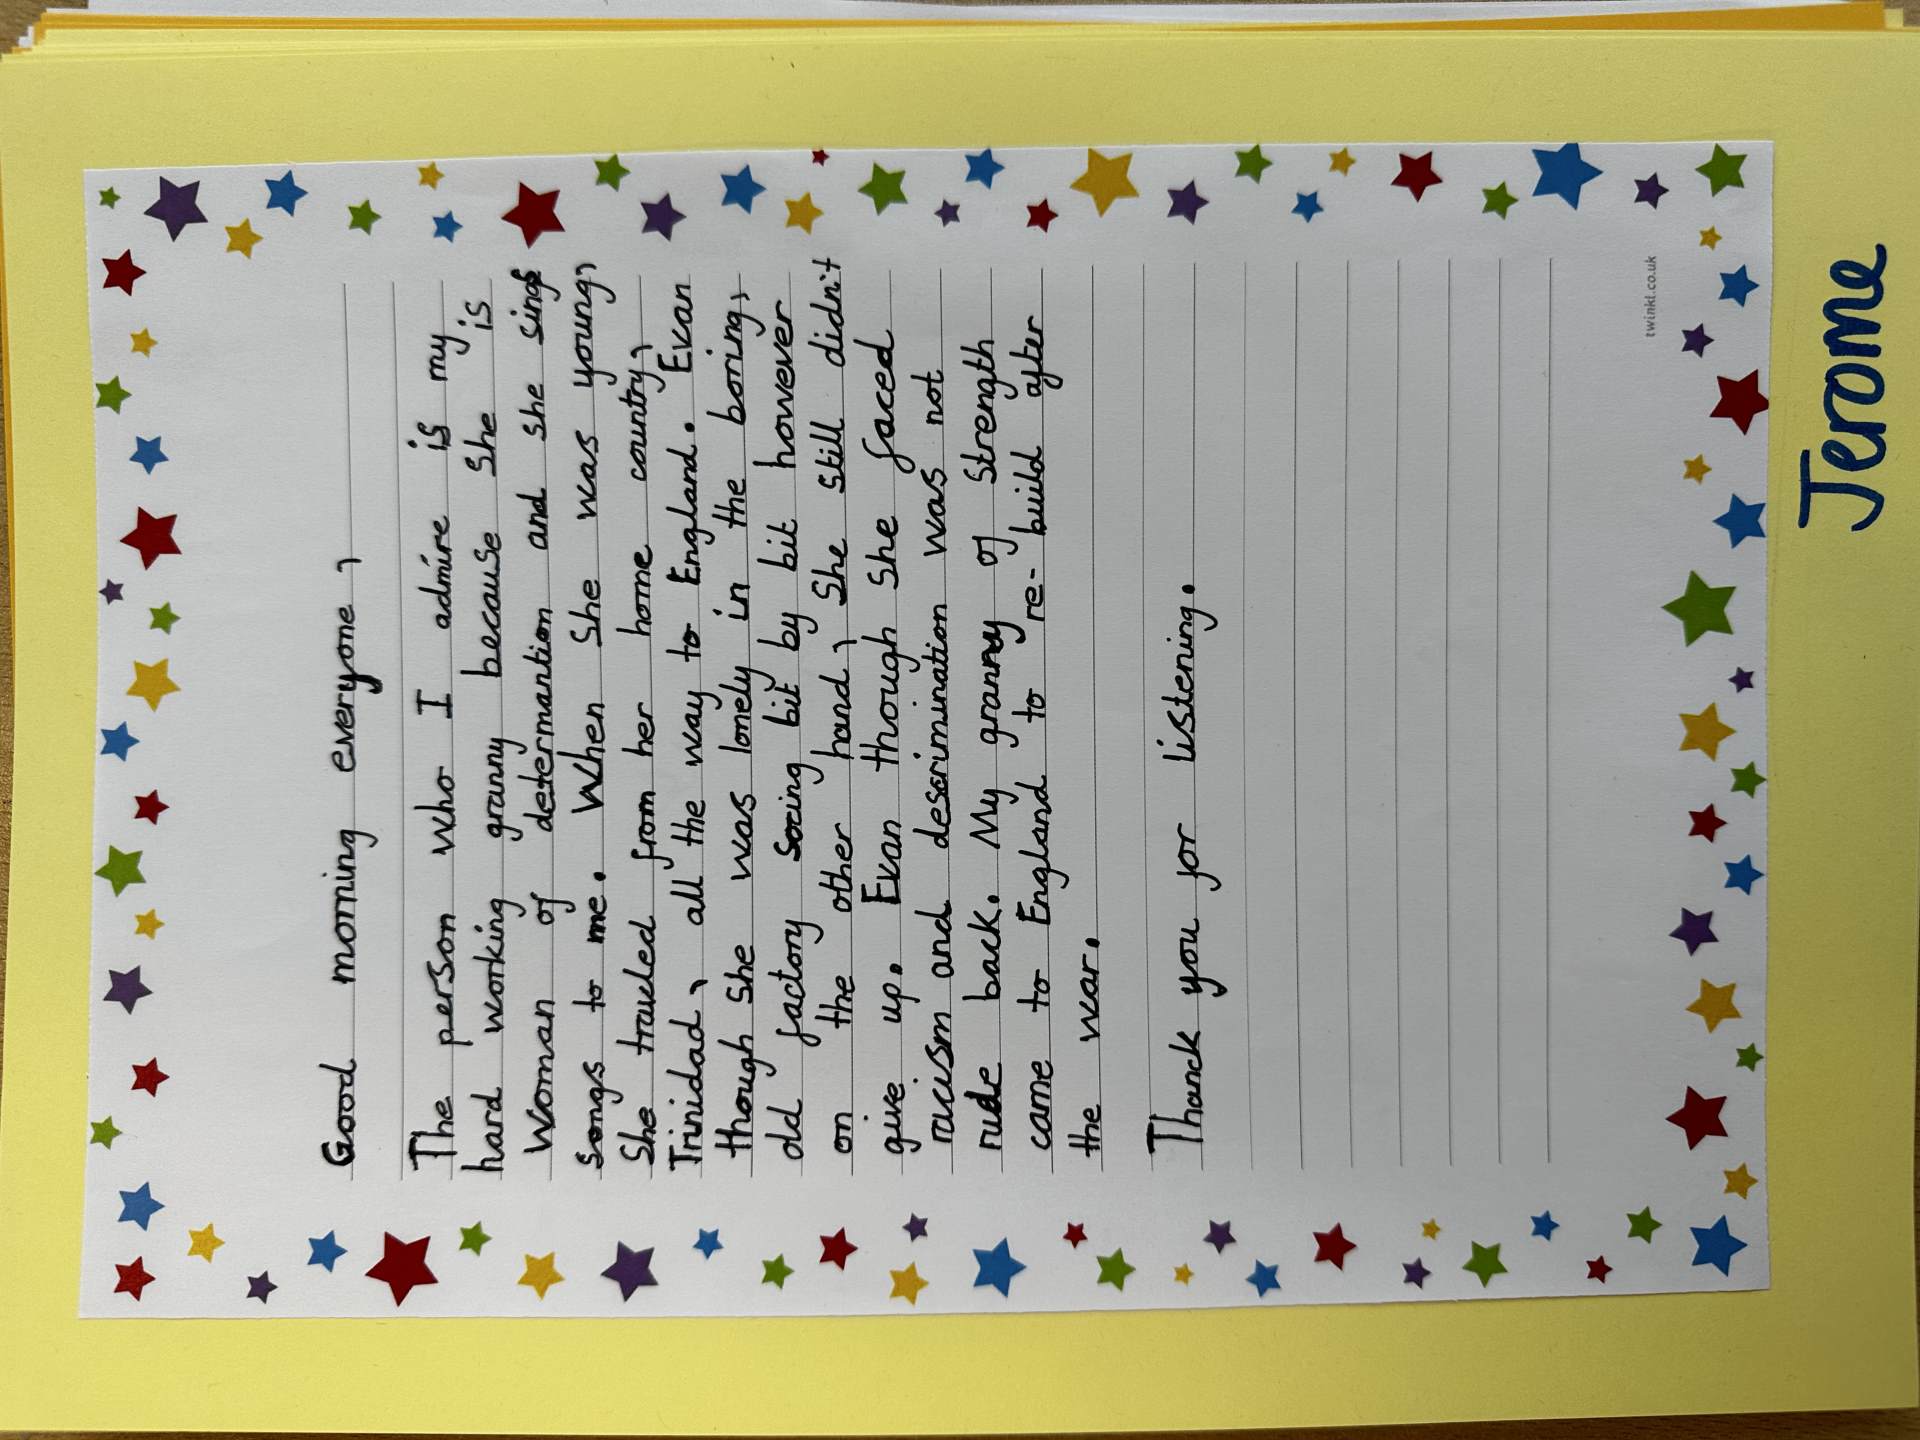 Good morning everyone,
The person who I admire is my
hard working granny because she is
woman of determantion and she sings
songs to me. When she was young,
She traveled from her home country,
Trinidad, all the way to England. Evan
though she was lonely in the boring,
old factory socing bit by bit however
on the other hand, She still didn't
give up. Evan though she faced
racism and descrimination was not
rude back. My granny of strength
came to England to re-build after
the war.
Thanck you for listening.
twinkl.co.uk
Jerome